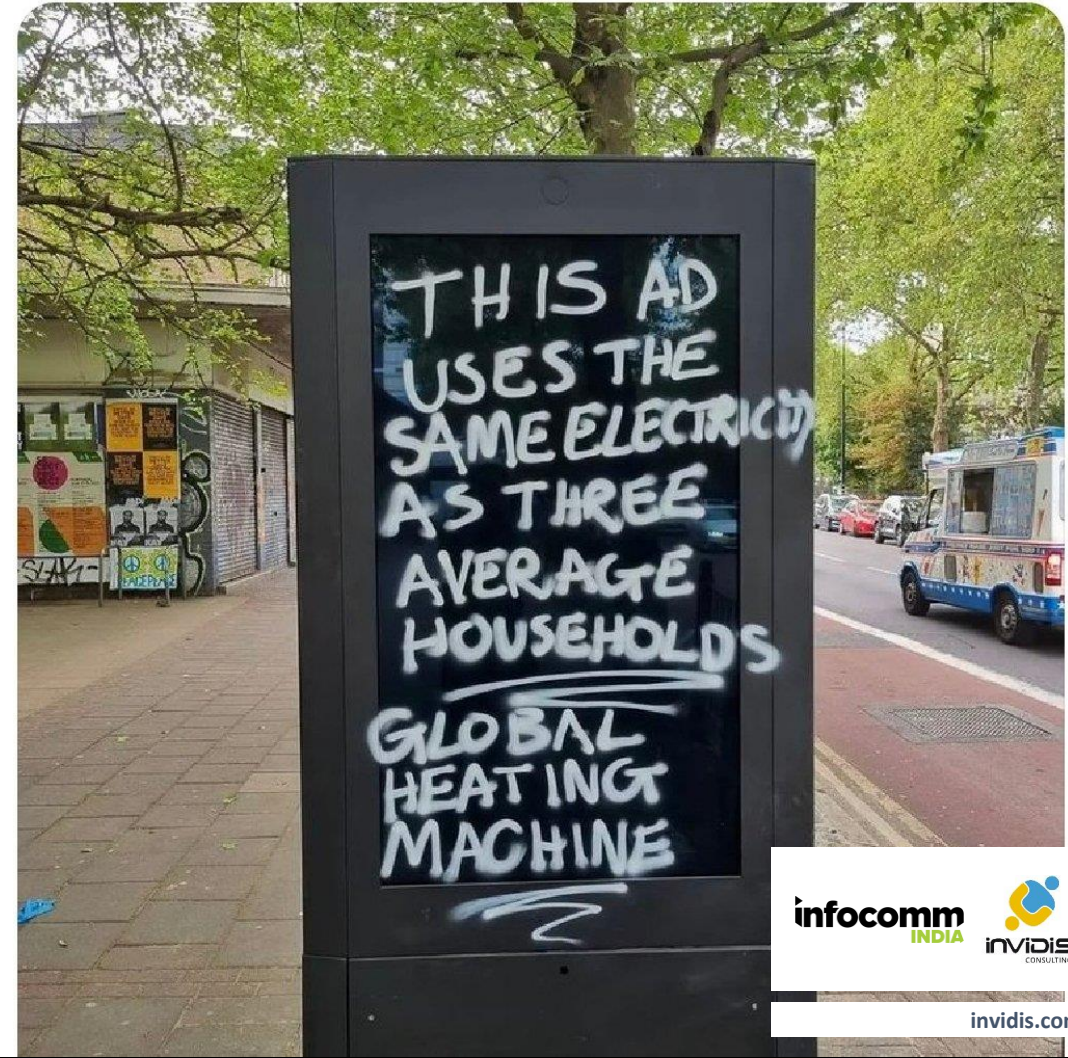 THIS AD
USES THE
SAME ELECTRICITY
AS THREE
AVERAGE
HOUSEHOLDS
GLOBAL
HEATING
MACHINE
infocomm
INDIA
invidis
CONSULTING
invidis.com